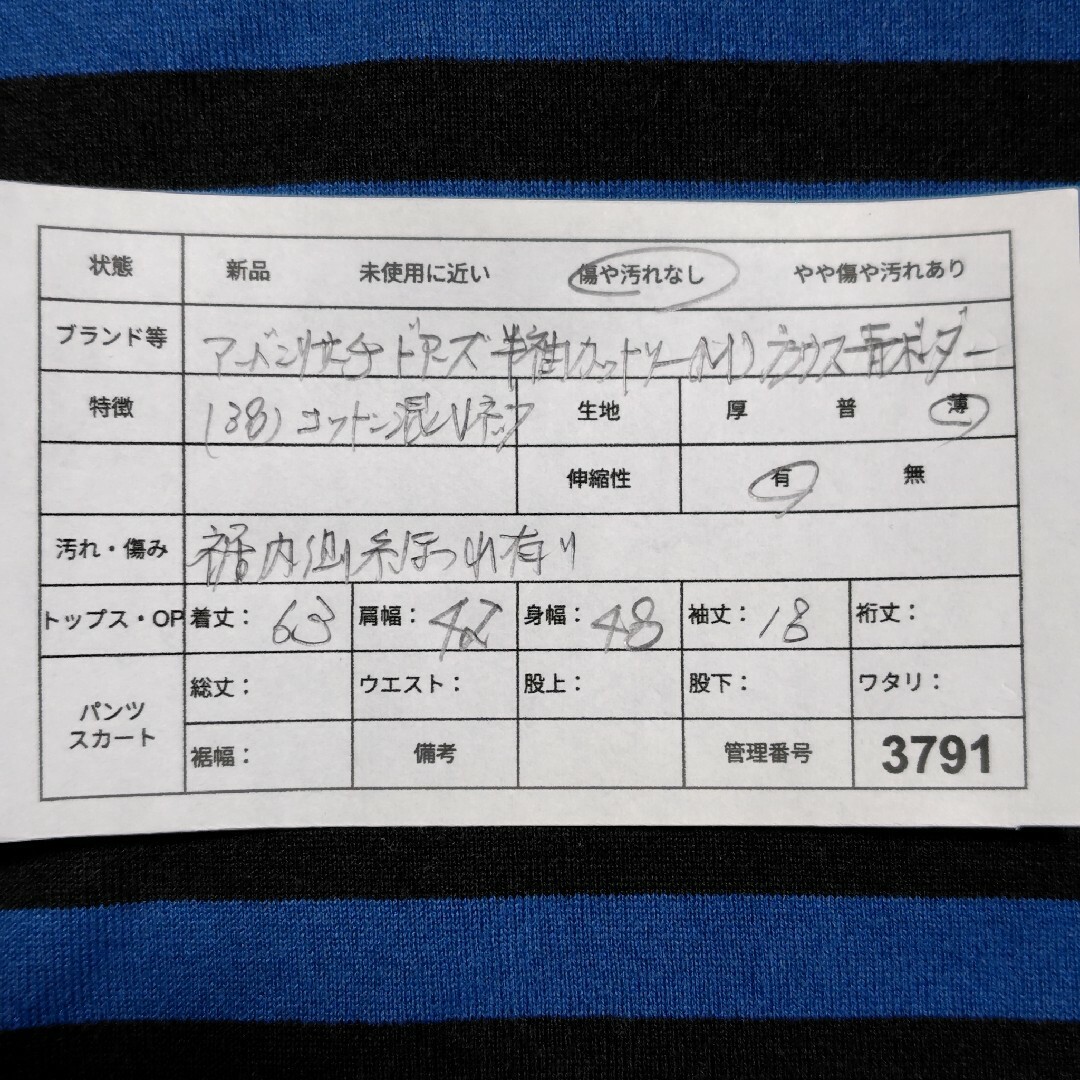 状態 新品 未使用に近い 傷や汚れなし やや傷や汚れあり
ブランド等 アーバンリサーチ ドアーズ 半袖カットソー(M)ブラウス 青ボーダー
特徴 (38) コットン混 Vネック 生地 厚 普 薄
伸縮性 有 無
汚れ・傷み 裾内側糸ほつれ有り
トップス・OP 着丈: 63 肩幅: 42 身幅: 48 袖丈: 18 裄丈:
パンツ スカート 総丈: ウエスト: 股上: 股下: ワタリ:
裾幅: 備考 管理番号 3791